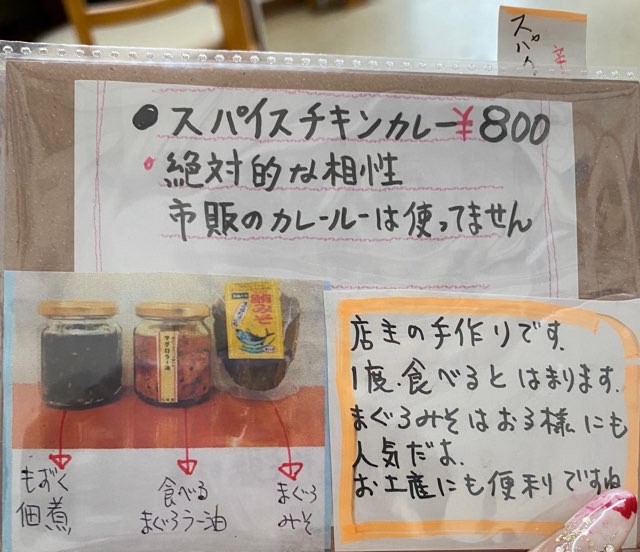 スパイ
● スパイスチキンカレー ¥800
絶対的な相性
市販のカレールーは使ってません
鮪みそ
マグロラー油
もずく
佃煮
食べる
まぐろラー油
まぐろ
みそ
店主の手作りです.
1度.食べるとはまります.
まぐろみそはお子様にも
人気だよ.
お土産にも便利ですね